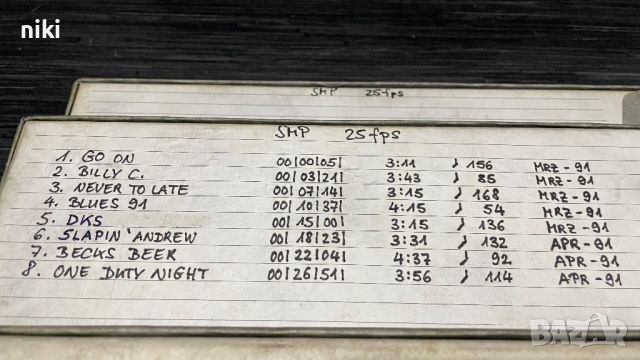 niki
SMP 25fps
SMP 25fps
1. GO ON 00|00|05| 3:11 ♩ 156 MRZ-91
2. BILLY C. 00|03|21| 3:43 ♩ 85 MRZ-91
3. NEVER TO LATE 00|07|14| 3:15 ♩ 168 MRZ-91
4. BLUES 91 00|10|37| 4:15 ♩ 54 MRZ-91
5. DKS 00|15|00| 3:15 ♩ 136 MRZ-91
6. SLAPIN'ANDREW 00|18|23| 3:31 ♩ 132 APR-91
7. BECKS BEER 00|22|04| 4:37 ♩ 92 APR-91
8. ONE DUTY NIGHT 00|26|51| 3:56 ♩ 114 APR-91
BAZAR